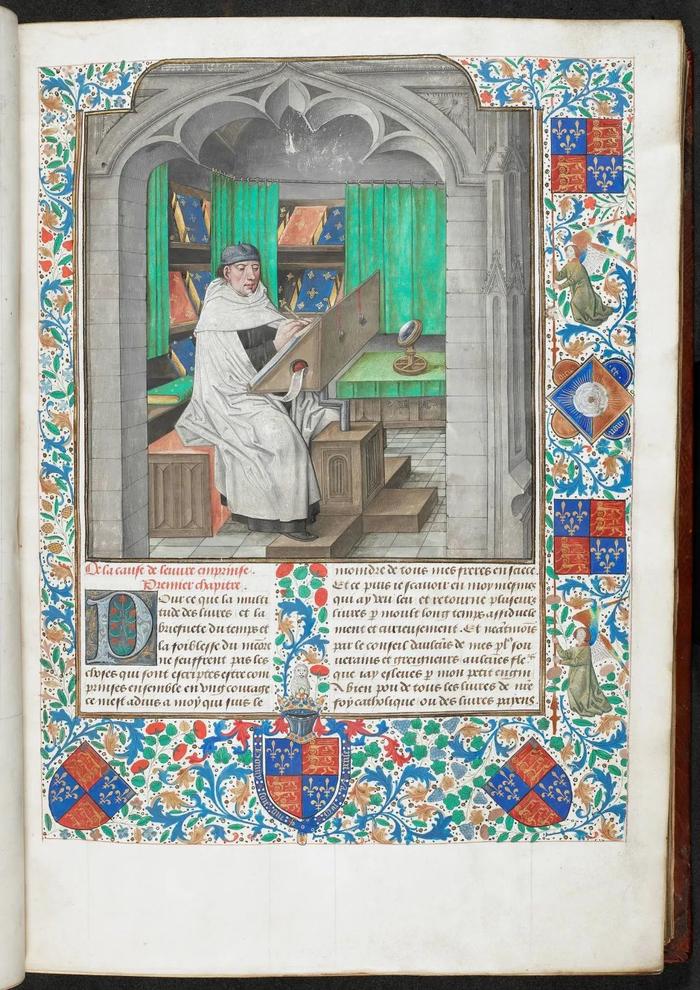 De la cause de leuure emprinse.
Premier chapitre.
Pour ce que la multi
tude des liures et la
briefuete du temps et
la foiblesse du
ne seuffrent pas les
choses qui sont escriptes estre com
prinses ensemble en vng courage
ce mest aduis a moy qui suis le
moindre de tous mes freres en
Et ce puis ie scauoir en moy mesme
qui ay veu leu et retourne pluseurs
liures p moult long temps assiduele
ment et curieusement. Et neātmoīs
par le conseil daulcūs de mes
uerains et greigneurs aulcūes
que iay esleues p mon petit engin
A bien pou de tous les liures de nr̄e
foy catholique ou des liures payens